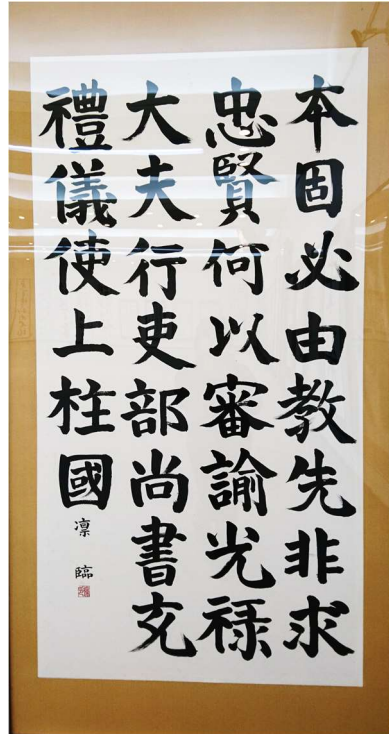 本固必由教先非求
忠賢何以審諭光禄
大夫行吏部尚書充
禮儀使上柱國
凛臨